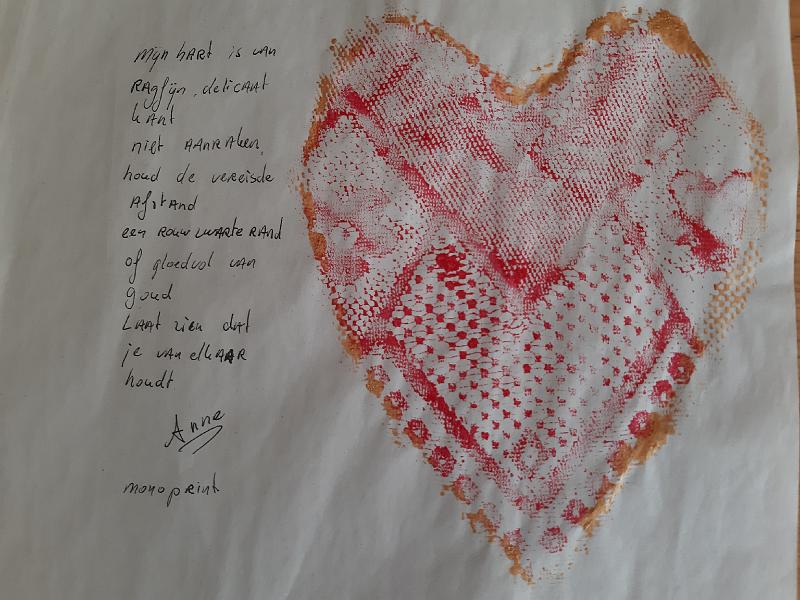 mijn hart is van
ragfijn, delicaat
kant
niet aanraken,
houd de vereisde
afstand
een rouwzwarte rand
of gloedvol van
goud
Laat zien dat
je van elkaar
houdt
Anne
monoprint